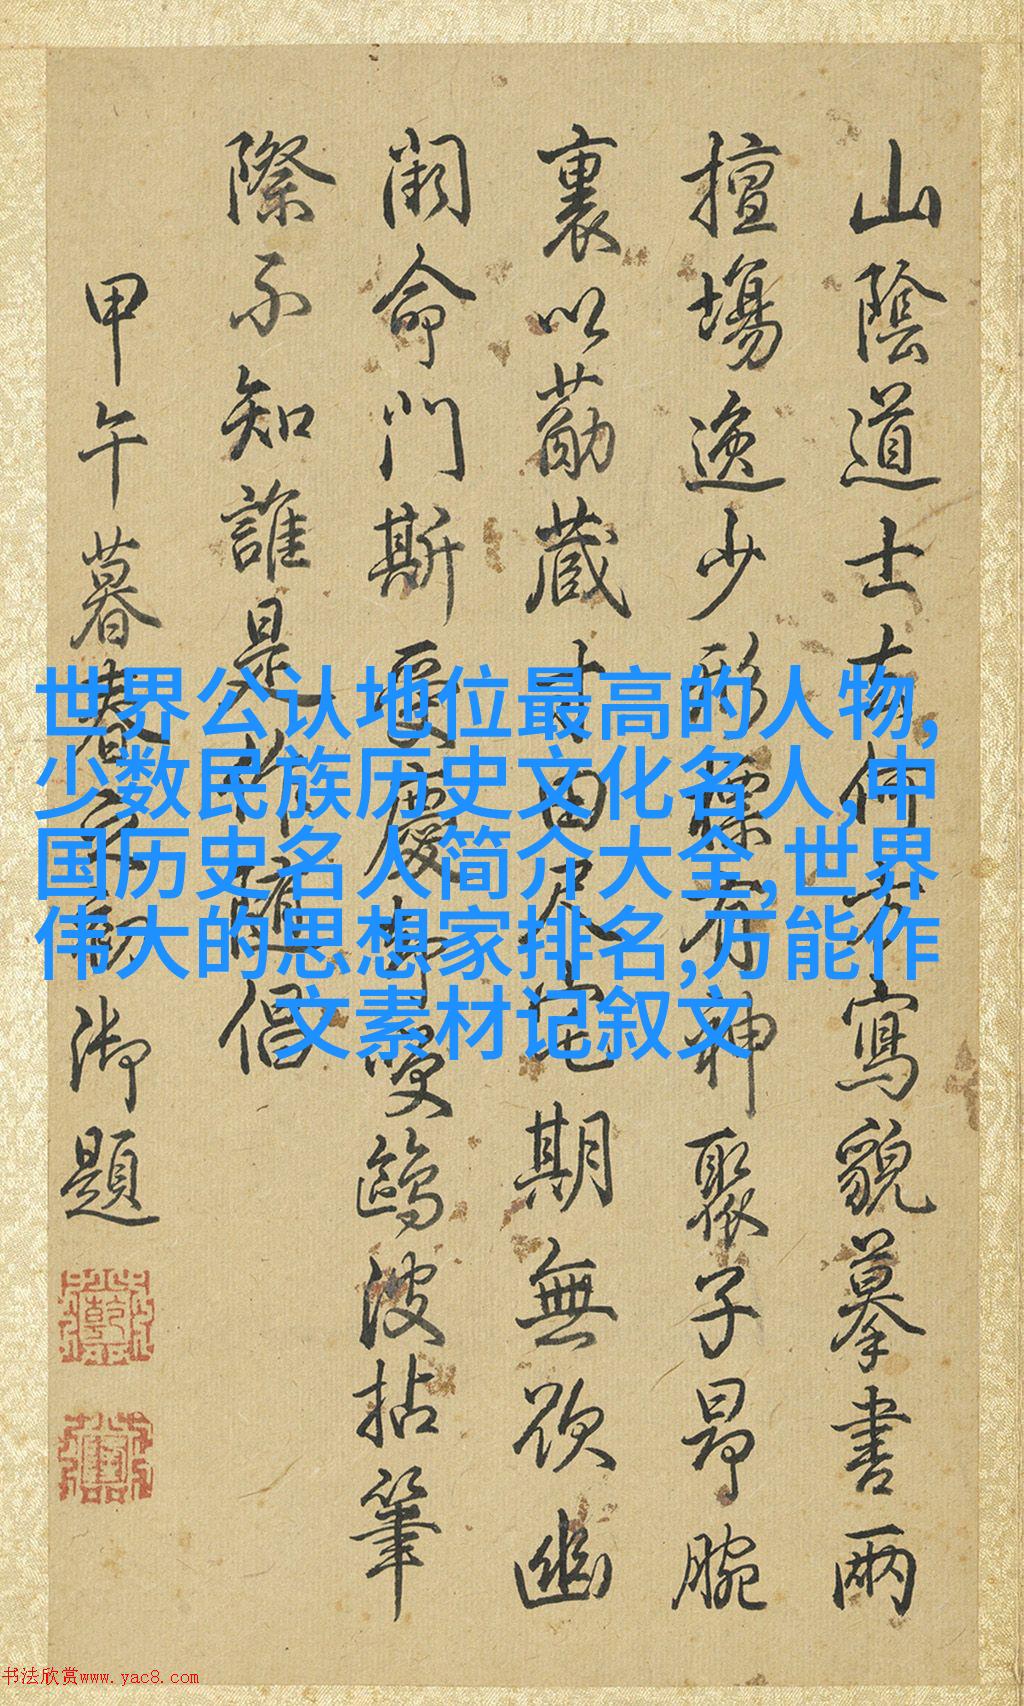 山陰道士有仲方寫貌摹書兩
擅場逸少形神聚子昂腕
裏以藏寸田尺宅期無欲幽
闕命門斯慶鷗波拈筆
際不知誰是
甲午暮春御題
世界公认地位最高的人物,
少数民族历史文化名人,中
国历史名人简介大全,世界
伟大的思想家排名,万能作
文素材记叙文
书法欣赏www.yac8.com